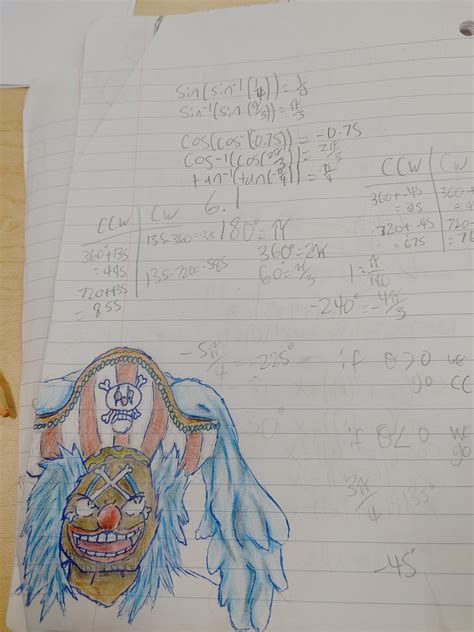 sin(sin⁻¹(1/4)) = 1/4
sin⁻¹(sin(π/3)) = π/3
cos(cos⁻¹(0.75)) = -0.75
cos⁻¹(cos(2π/3)) = 2π/3
tan⁻¹(tan(-π/4)) = π/4
6.1
CCW | CW
360°+135 = 495
720+135 = 855
135-720=-585
180°=π
360°=2π
60°=π/3
1=π/180
-240°=-4π/3
CCW
360+-45 = 315
720+-45 = 675
-5π/4 = -225°
if θ>0 we
go CC
if θ<0 we
go
3π/4 = 135°
-45°